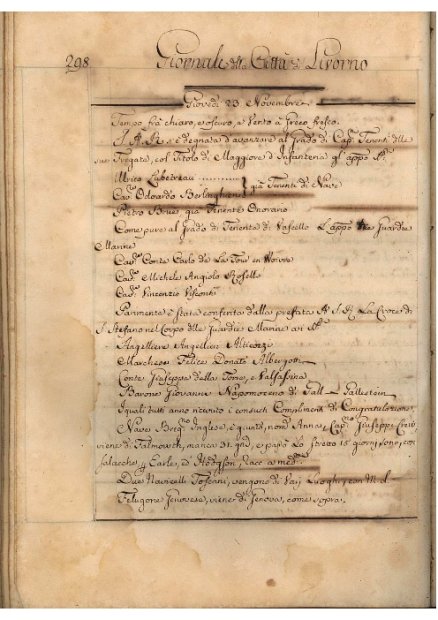 298 Giornale della Città di Livorno
Giovedi 23. Novembre
Tempo frà chiaro, e oscuro, e Vento à Greco fresco.
S. A. R. s'è degnata d'avanzare al Grado di Cap: Tenenti delle
sue Fregate, col Titolo di Maggiore d'Infanteria gl'appō Sri
Ulrico
Cav: Odoardo già Tenenti di Nave
Pietro già Tenente Onorario
Come pure al Grado di Tenente di Vascello L'appō Guardie
Marine
Cad: Conte Carlo de La Tour en Woivre
Cad: Michele Angiolo Roselli
Cad: Vincenzio Visconti
Parimente è stata conferita dalla prefata A. S. R. La Croce di
S. Stefano nel Corpo delle Guardie Marine ai Sri
Angelieri Alticozzi
Marchese Felice Donato Albergotti
Conte Giuseppe della Torre, e Valsassina
Barone Giovanni Napomoceno di
I quali tutti anno ricevuto i consueti Complimenti di Congratulazione
Nave Brig: Inglese, è quinto, nom: Anna, Cap: Giuseppe
viene di Falmouth, manca 31. gni, e passò Lo Stretto 15 giorni sono, con
salacche, à Earle, ed Hodgson, racc: a med:
Due Navicelli Toscani, vengono da Varj Luoghi, con
Felugone Genovese, viene di Genova, come sopra.